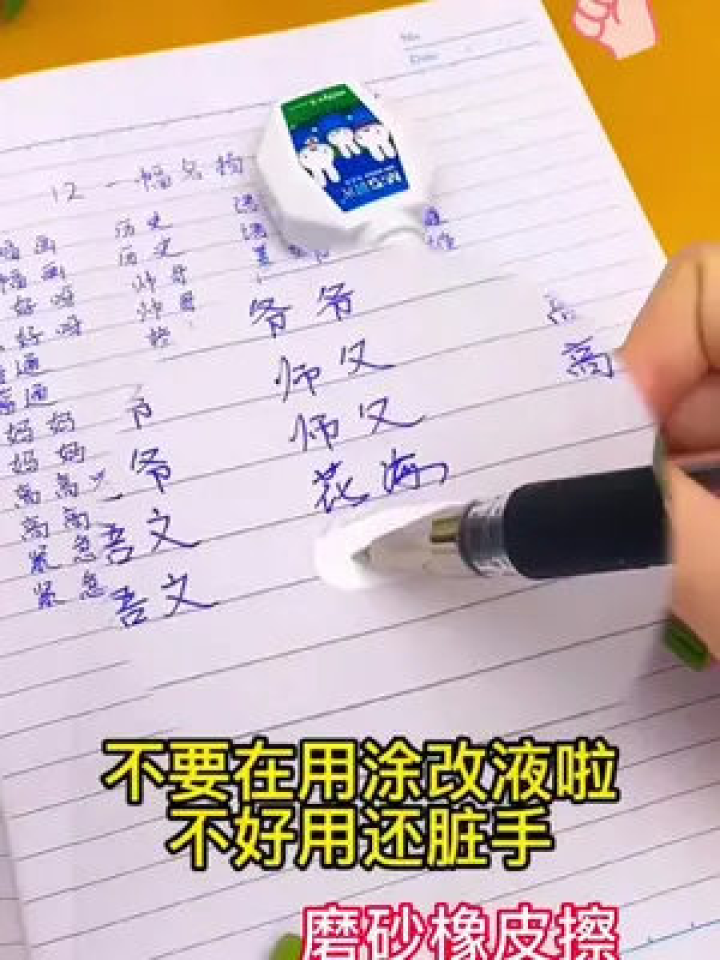 No.
Date
12 一幅名扬
幅画 历史
幅画 历史
好呀 师哥
好呀 师哥
爷爷
通
通 师父 高
妈妈 师父
妈妈 爷 花海
高高
高高
紧急 吾文
紧急 吾文
不要在用涂改液啦
不好用还脏手
磨砂橡皮擦